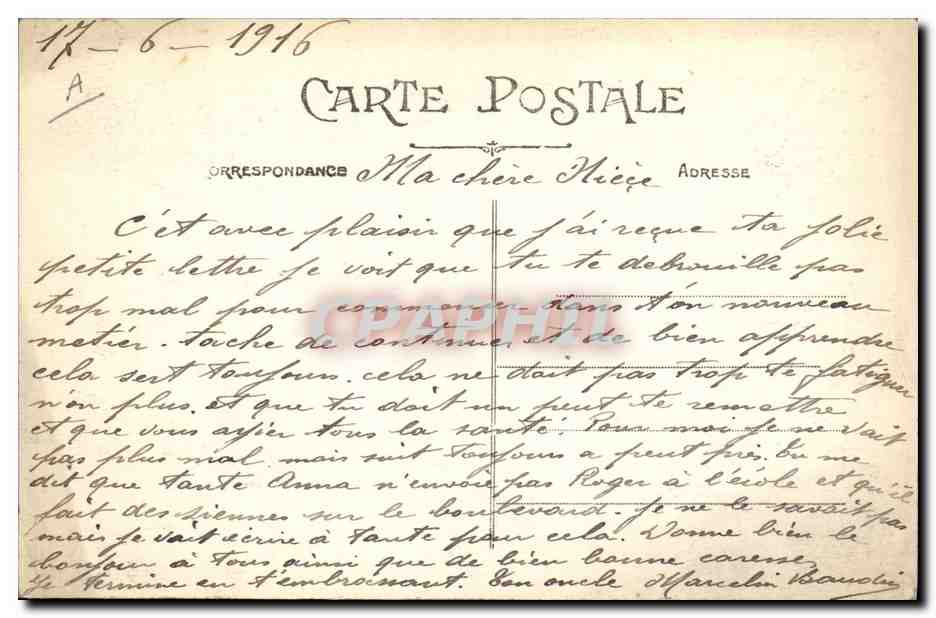 17 - 6 - 1916
A
CARTE POSTALE
ORRESPONDANCE Ma chère Nièçe ADRESSE
C'ét avec plaisir que j'ai reçue ta jolie
petite lettre je voit que tu te debrouille pas
trop mal pour commencer dans t'on nouveau
metier. tache de continuer et de bien apprendre
cela sert toujours. cela ne doit pas trop te fatiguer
n'on plus. et que tu doit un peut te remettre
et que vous ayier tous la santé. Pour moi je ne vait
pas plus mal. mais suit toujours a peut près. Tu me
dit que tante Anna n'envoie pas Roger à l'école et qu'il
fait des siennes sur le boulevard. je ne le savait pas
mais je vait ecrire à tante pour cela. Donne bien le
bonjour à tous ainsi que de bien bonne caresse,
je termine en t'embrassant. Ton oncle Marcelin Baudin
CPAPHIL